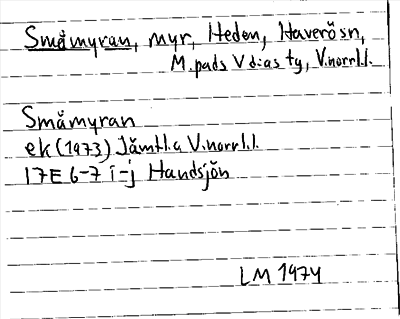 Småmyran, myr, Heden, Haverösn,
M.pads V dias ty, V.norrl.l.
Småmyran
ek (1973) Jämtl. a V.norrl.l.
17E 6-7 i-j Handsjön
LM 1974